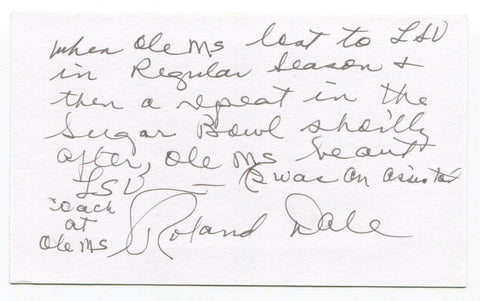 when Ole Ms lost to LSU
in Regular Season &
then a repeat in the
Sugar Bowl shortly
after, Ole Ms beat
LSU — I was an assistant
coach
at
Ole Ms
Roland Dale